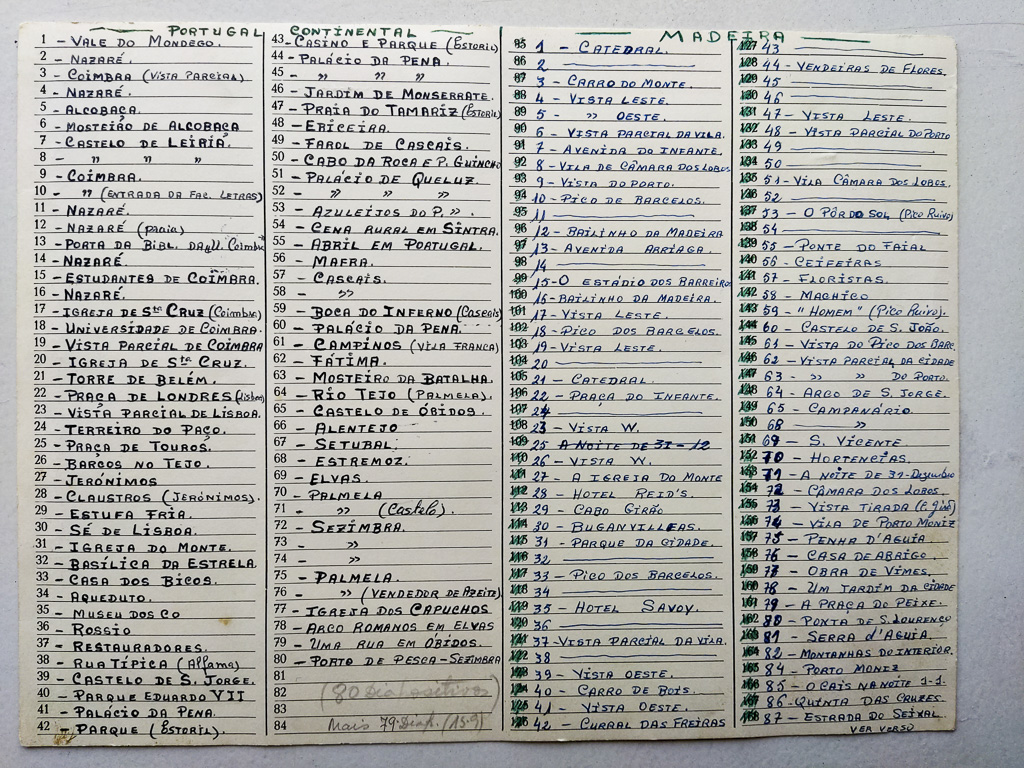 PORTUGAL CONTINENTAL
1 - VALE DO MONDEGO.
2 - NAZARÉ.
3 - COIMBRA (VISTA PARCIAL)
4 - NAZARÉ.
5 - ALCOBAÇA.
6 - MOSTEIRO DE ALCOBAÇA
7 - CASTELO DE LEIRIA.
8 - " " "
9 - COIMBRA.
10 - " (ENTRADA DA FAC. LETRAS)
11 - NAZARÉ.
12 - NAZARÉ (praia)
13 - PORTA DA BIBL. DA U. Coimbra
14 - NAZARÉ.
15 - ESTUDANTES DE COIMBRA.
16 - NAZARÉ.
17 - IGREJA DE Sta CRUZ (Coimbra)
18 - UNIVERSIDADE DE COIMBRA.
19 - VISTA PARCIAL DE COIMBRA
20 - IGREJA DE Sta CRUZ.
21 - TORRE DE BELÉM.
22 - PRAÇA DE LONDRES (Lisboa)
23 - VISTA PARCIAL DE LISBOA.
24 - TERREIRO DO PAÇO.
25 - PRAÇA DE TOUROS.
26 - BARCOS NO TEJO.
27 - JERÓNIMOS
28 - CLAUSTROS (JERÓNIMOS).
29 - ESTUFA FRIA.
30 - SÉ DE LISBOA.
31 - IGREJA DO MONTE.
32 - BASÍLICA DA ESTRELA
33 - CASA DOS BICOS.
34 - AQUEDUTO.
35 - MUSEU DOS CO
36 - ROSSIO
37 - RESTAURADORES.
38 - RUA TÍPICA (Alfama)
39 - CASTELO DE S. JORGE.
40 - PARQUE EDUARDO VII
41 - PALÁCIO DA PENA.
42 - PARQUE (ESTORIL).
43 - CASINO E PARQUE (Estoril)
44 - PALÁCIO DA PENA.
45 - " " "
46 - JARDIM DE MONSERRATE.
47 - PRAIA DO TAMARIZ (Estoril)
48 - ERICEIRA.
49 - FAROL DE CASCAIS.
50 - CABO DA ROCA E P. GUINCHO
51 - PALÁCIO DE QUELUZ.
52 - " " "
53 - AZULEIJOS DO P. ".
54 - CENA RURAL EM SINTRA.
55 - ABRIL EM PORTUGAL.
56 - MAFRA.
57 - CASCAIS.
58 - "
59 - BOCA DO INFERNO (Cascais)
60 - PALÁCIO DA PENA.
61 - CAMPINOS (VILA FRANCA)
62 - FÁTIMA.
63 - MOSTEIRO DA BATALHA.
64 - RIO TEJO (PALMELA).
65 - CASTELO DE ÓBIDOS.
66 - ALENTEJO
67 - SETUBAL.
68 - ESTREMOZ.
69 - ELVAS.
70 - PALMELA
71 - " (Castelo).
72 - SEZIMBRA.
73 - "
74 - "
75 - PALMELA.
76 - " (VENDEDOR DE AZEITE)
77 - IGREJA DOS CAPUCHOS
78 - ARCO ROMANOS EM ELVAS
79 - UMA RUA EM ÓBIDOS.
80 - PORTO DE PESCA - SEZIMBRA
81
82 (80 Diapositivos)
83
84 Mais 79 Diap. (159)
MADEIRA
85 1 - CATEDRAL.
86 2
87 3 - CARRO DO MONTE.
88 4 - VISTA LESTE.
89 5 - " OESTE.
90 6 - VISTA PARCIAL DA VILA.
91 7 - AVENIDA DO INFANTE.
92 8 - VILA DE CÂMARA DOS LOBOS
93 9 - VISTA DO PORTO.
94 10 - PICO DE BARCELOS.
95 11
96 12 - BAILINHO DA MADEIRA
97 13 - AVENIDA ARRIAGA.
98 14
99 15 - O ESTÁDIO DOS BARREIROS
100 16 - BAILINHO DA MADEIRA.
101 17 - VISTA LESTE.
102 18 - PICO DOS BARCELOS.
103 19 - VISTA LESTE.
104 20
105 21 - CATEDRAL.
106 22 - PRAÇA DO INFANTE.
107 24
108 23 - VISTA W.
109 25 A NOITE DE 31-12
110 26 - VISTA W.
111 27 - A IGREJA DO MONTE
112 28 - HOTEL REID'S.
113 29 - CABO GIRÃO
114 30 - BUGANVILLEAS.
115 31 - PARQUE DA CIDADE.
116 32
117 33 - PICO DOS BARCELOS.
118 34
119 35 - HOTEL SAVOY.
120 36
121 37 - VISTA PARCIAL DA VILA.
122 38
123 39 - VISTA OESTE.
124 40 - CARRO DE BOIS.
125 41 - VISTA OESTE.
126 42 - CURRAL DAS FREIRAS
127 43
128 44 - VENDEIRAS DE FLORES.
129 45
130 46
131 47 - VISTA LESTE.
132 48 - VISTA PARCIAL DO PORTO
133 49
134 50
135 51 - VILA CÂMARA DOS LOBOS.
136 52
137 53 - O PÔR DO SOL (Pico Ruivo)
138 54
139 55 - PONTE DO FAIAL
140 56 - CEIFEIRAS
141 57 - FLORISTAS.
142 58 - MACHICO
143 59 - "HOMEM" (Pico Ruivo).
144 60 - CASTELO DE S. JOÃO.
145 61 - VISTA DO PICO DOS BARC.
146 62 - VISTA PARCIAL DA CIDADE
147 63 - " " DO PORTO.
148 64 - ARCO DE S. JORGE.
149 65 - CAMPANÁRIO.
150 68 "
151 69 - S. VICENTE.
152 70 - HORTENCIAS.
153 71 - A NOITE DE 31-Dezembro
154 72 - CÂMARA DOS LOBOS.
155 73 - VISTA TIRADA
156 74 - VILA DE PORTO MONIZ
157 75 - PENHA D'AGUIA
158 76 - CASA DE ABRIGO.
159 77 - OBRA DE VIMES.
160 78 - UM JARDIM DA CIDADE
161 79 - A PRAÇA DO PEIXE.
162 80 - PONTA DE S. LOURENÇO
163 81 - SERRA d'AGUIA.
164 82 - MONTANHAS DO INTERIOR.
165 84 - PORTO MONIZ
166 85 - O CAIS NA NOITE 1-1.
167 86 - QUINTA DAS CRUZES.
168 87 - ESTRADA DO SEIXAL
VER VERSO